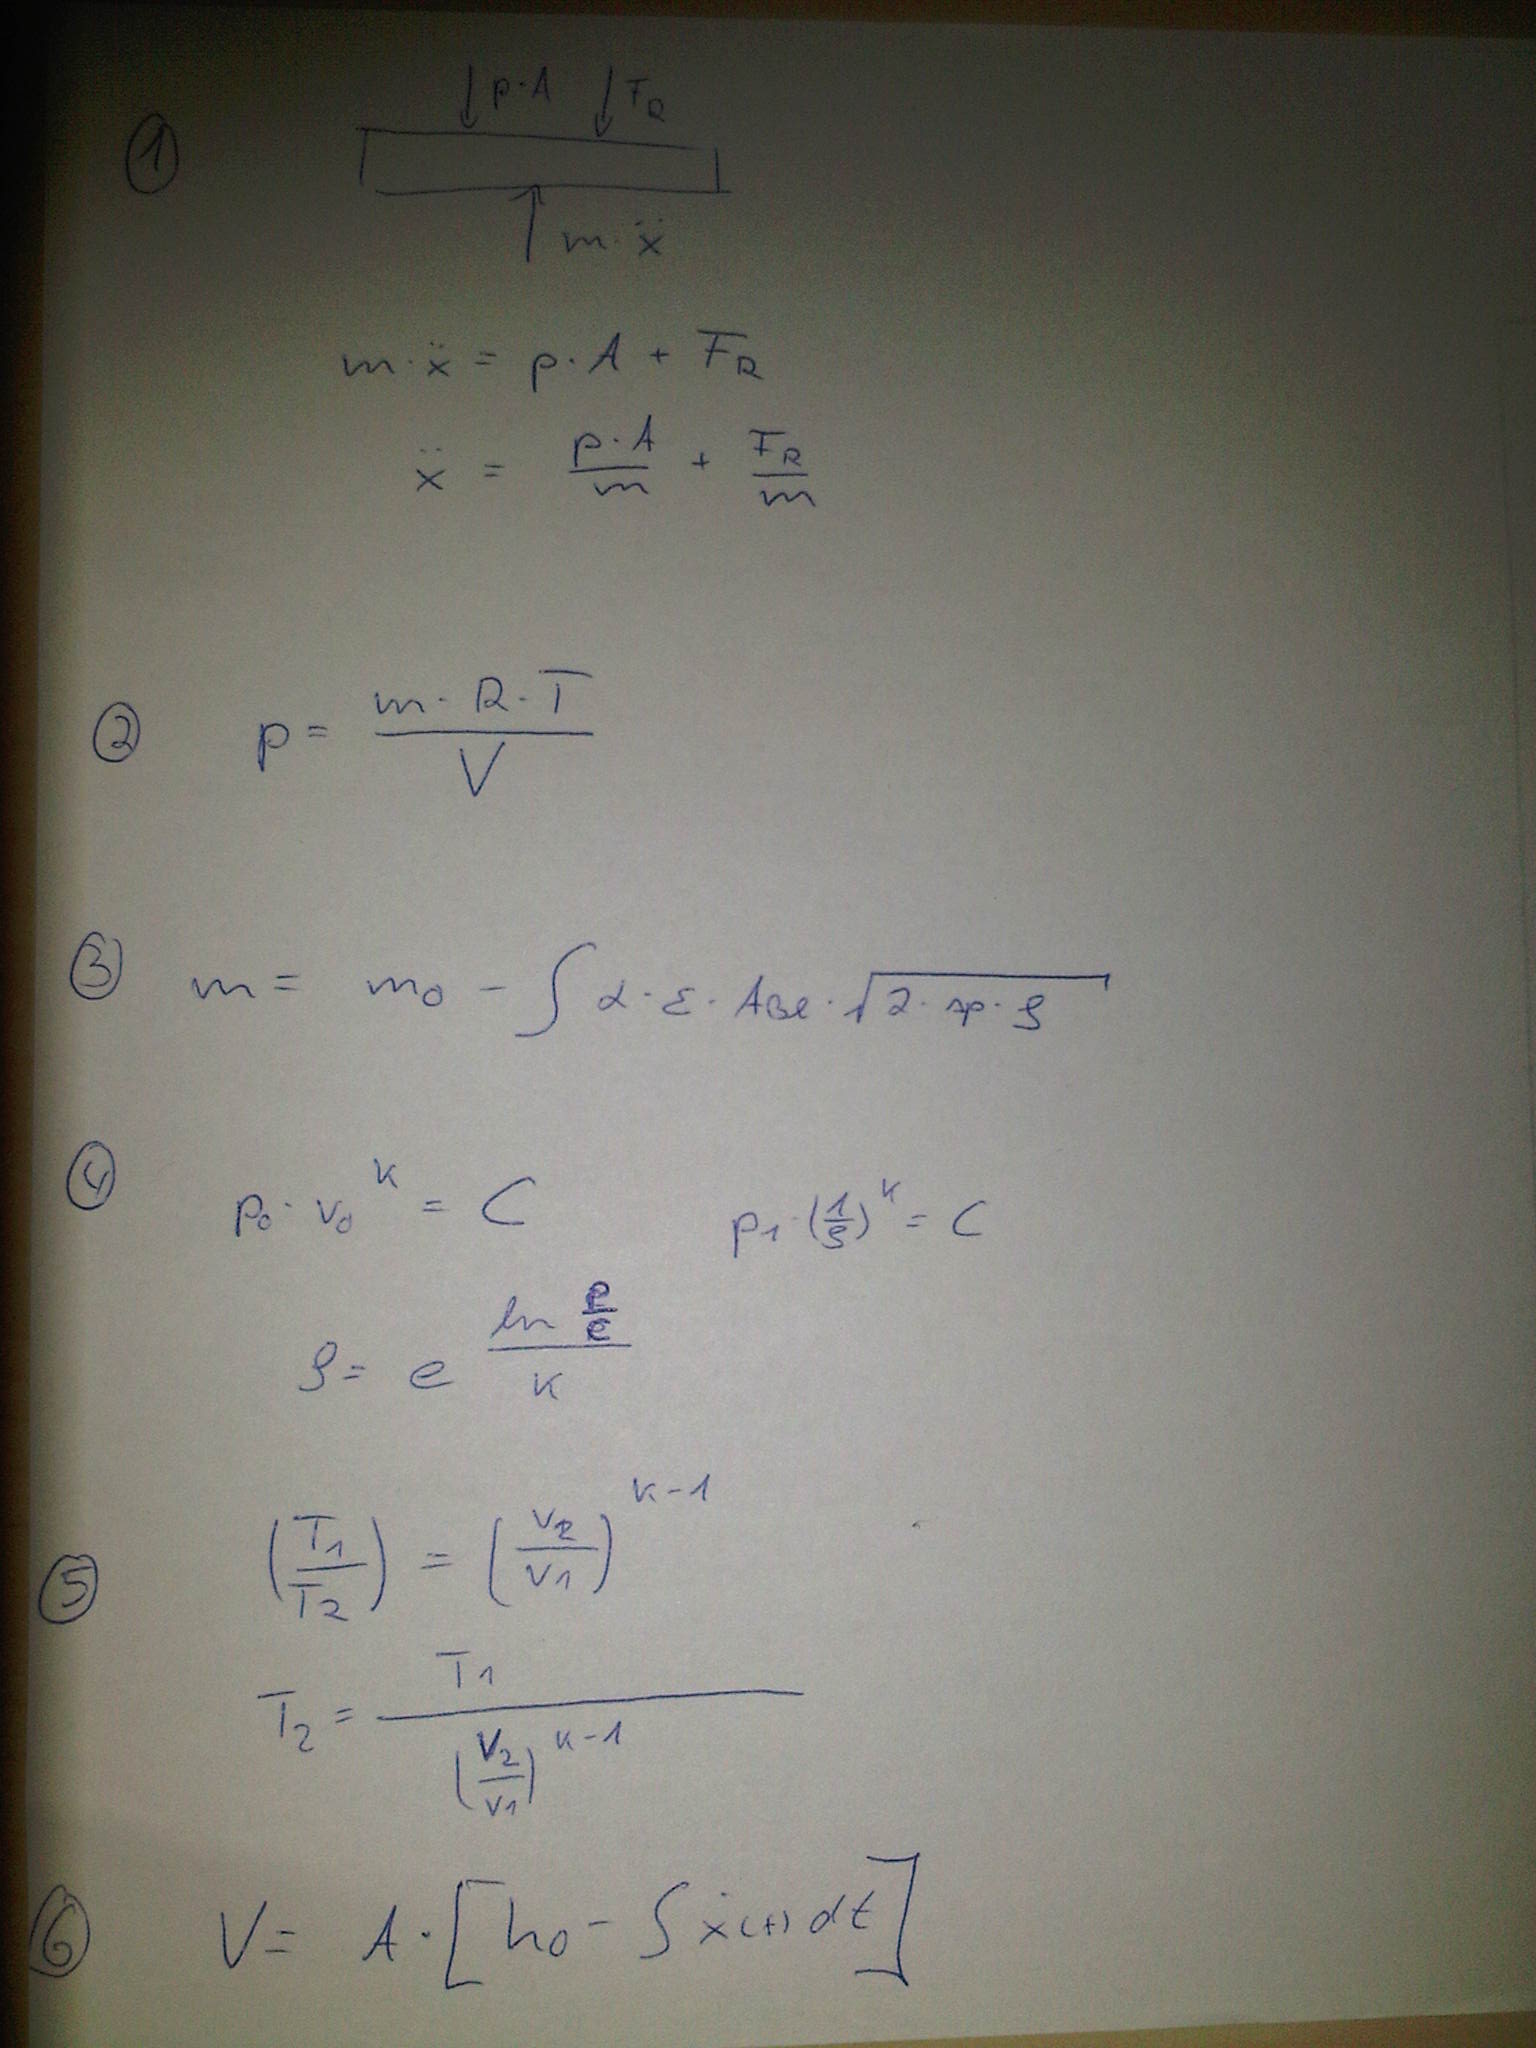 ① ↓ p·A ↓ F_R
↑ m·ẍ
m·ẍ = p·A + F_R
ẍ = p·A/m + F_R/m
② p = m·R·T/V
③ m = m₀ − ∫ α·ε·A_Bl·√(2·Δp·ρ)
④ p₀·v₀^κ = C p₁·(1/ρ)^κ = C
ρ = e^(ln(p/c)/κ)
⑤ (T₁/T₂) = (v₂/v₁)^(κ−1)
T₂ = T₁/(v₂/v₁)^(κ−1)
⑥ V = A·[h₀ − ∫ẋ(t) dt]